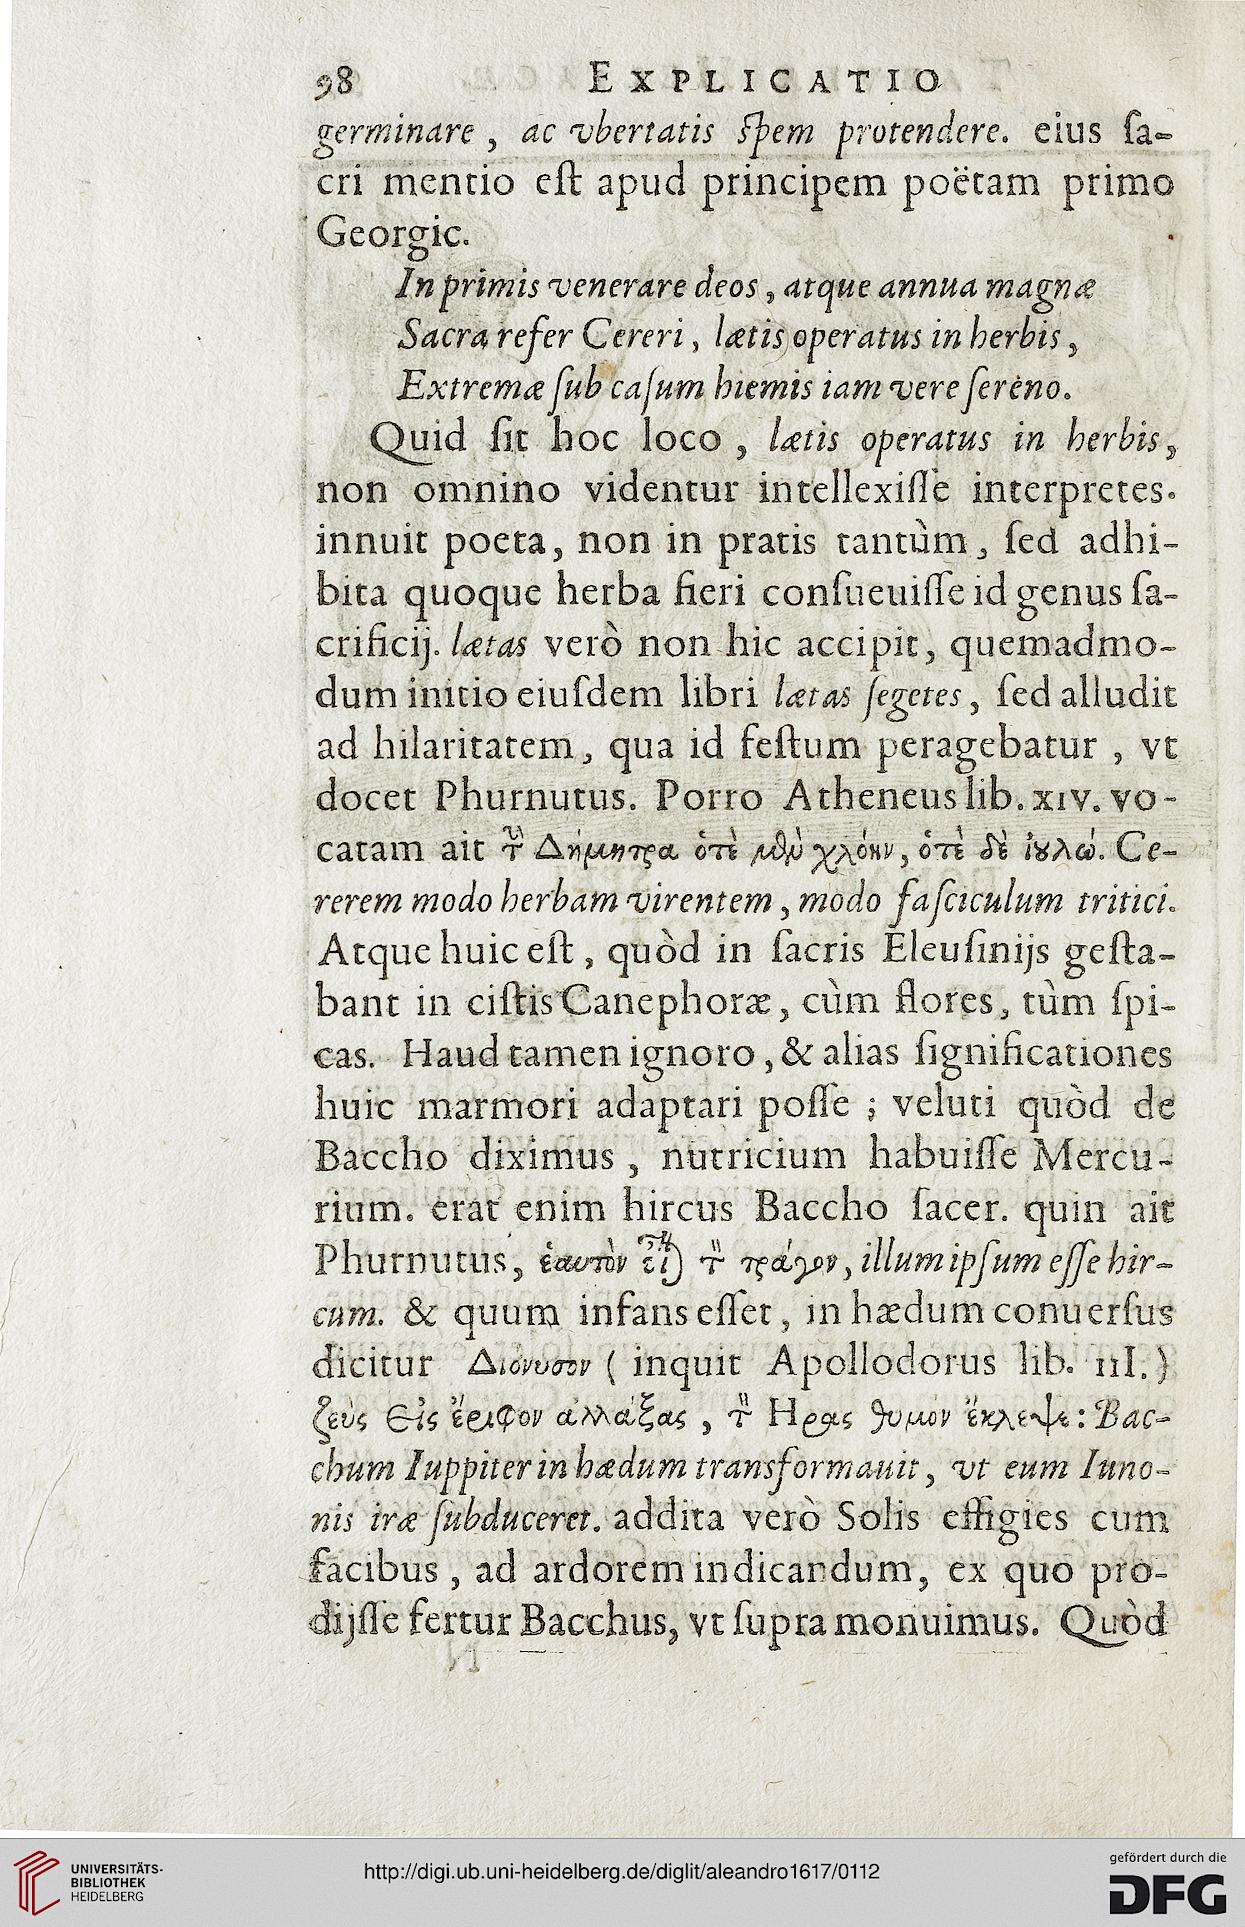 98 EXPLICATIO
germinare, ac vbertatis ſpem protendere. eius ſa-
cri mentio eſt apud principem poëtam primo
Georgic.
In primis venerare deos, atque annua magnæ
Sacra refer Cereri, lætis operatus in herbis,
Extremæ ſub caſum hiemis iam vere ſereno.
Quid ſit hoc loco, lætis operatus in herbis,
non omnino videntur intellexiſſe interpretes.
innuit poeta, non in pratis tantùm, ſed adhi-
bita quoque herba fieri conſueuiſſe id genus ſa-
crificij. lætas verò non hic accipit, quemadmo-
dum initio eiuſdem libri lætas ſegetes, ſed alludit
ad hilaritatem, qua id feſtum peragebatur, vt
docet Phurnutus. Porro Atheneus lib. XIV. vo-
catam ait τὴν Δήμητρα ὁτὲ μὲν χλόην, ὁτὲ δὲ ἰουλώ. Ce-
rerem modo herbam virentem, modo faſciculum tritici.
Atque huic eſt, quòd in ſacris Eleuſinijs geſta-
bant in ciſtis Canephoræ, cùm flores, tùm ſpi-
cas. Haud tamen ignoro, & alias ſignificationes
huic marmori adaptari poſſe; veluti quòd de
Baccho diximus, nutricium habuiſſe Mercu-
rium. erat enim hircus Baccho ſacer. quin ait
Phurnutus, ἑαυτὸν εἶναι τὸν τράγον, illum ipſum eſſe hir-
cum. & quum infans eſſet, in hædum conuerſus
dicitur Διόνυσον (inquit Apollodorus lib. III.)
ζεὺς εἰς ἔριφον ἀλλάξας, τὸν Ηρας θυμὸν ἔκλεψε: Bac-
chum Iuppiter in hædum transformauit, vt eum Iuno-
nis iræ ſubduceret. addita verò Solis effigies cum
facibus, ad ardorem indicandum, ex quo pro-
dijſſe fertur Bacchus, vt ſupra monuimus. Quòd
UNIVERSITÄTS-
BIBLIOTHEK
HEIDELBERG
http://digi.ub.uni-heidelberg.de/diglit/aleandro1617/0112
gefördert durch die
DFG